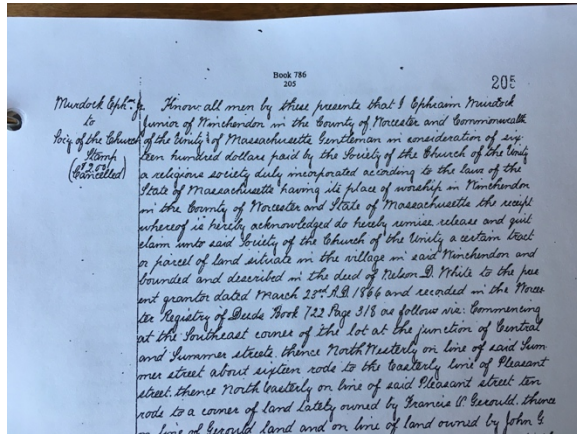 Book 786
205
205
Murdock Ephm Jr.
to
Socy of the Church of the Unity
Stamp
($2.00)
(Cancelled)
Know all men by these presents that I Ephraim Murdock
Junior of Winchendon in the County of Worcester and Commonwealth
of Massachusetts Gentleman in consideration of six-
teen hundred dollars paid by the Society of the Church of the Unity
a religious society duly incorporated according to the laws of the
State of Massachusetts having its place of worship in Winchendon
in the County of Worcester and State of Massachusetts the receipt
whereof is hereby acknowledged do hereby remise release and quit
claim unto said Society of the Church of the Unity a certain tract
or parcel of land situate in the village in said Winchendon and
bounded and described in the deed of Nelson D. White to the pres
ent grantor dated March 23rd A.D. 1866 and recorded in the Worces
ter Registry of Deeds Book 722 Page 318 as follows viz: Commencing
at the Southeast corner of the lot at the junction of Central
and Summer streets, thence North Westerly on line of said Sum
mer street about sixteen rods to the Easterly line of Pleasant
street, thence North Easterly on line of said Pleasant street ten
rods to a corner of land lately owned by Francis W. Gerould, thence
on line of Gerould land and on line of land owned by John G.